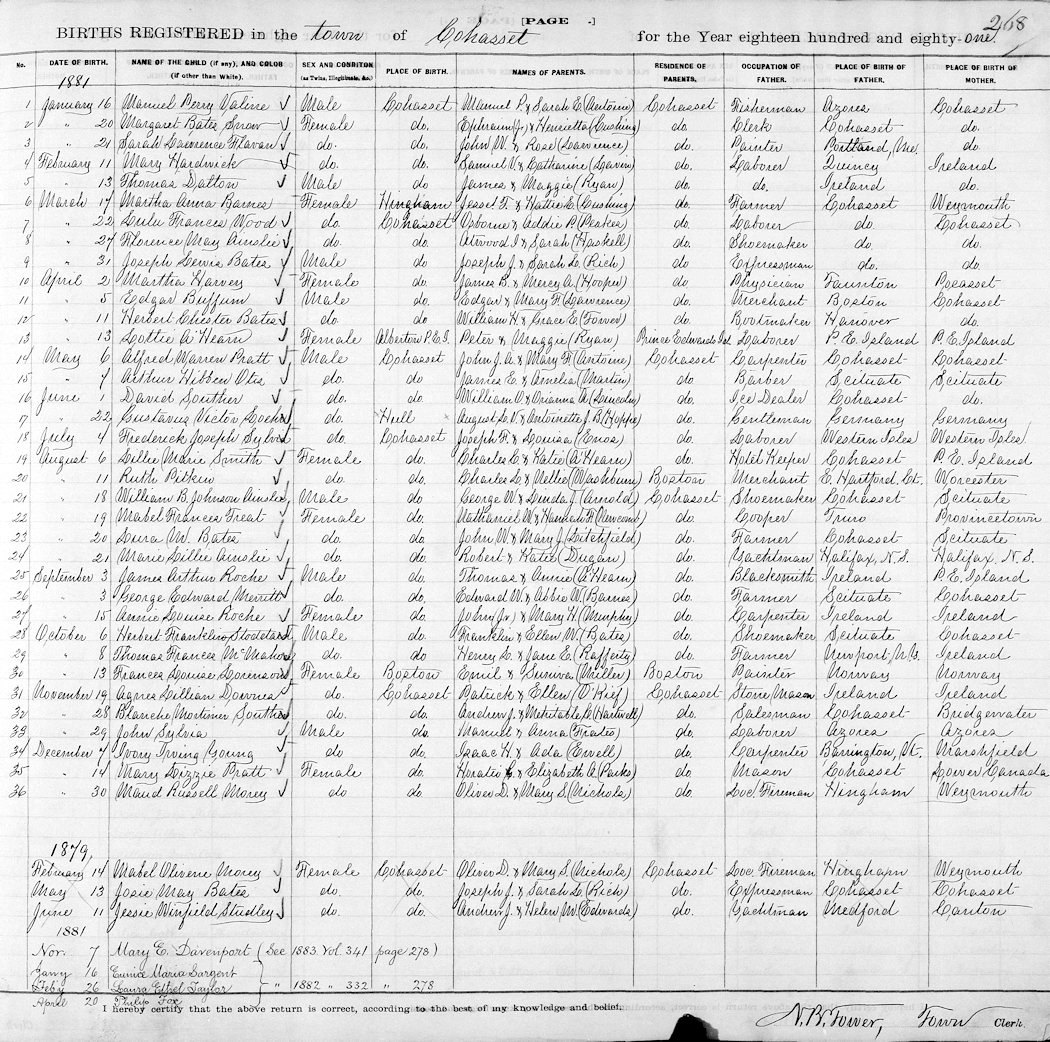 [PAGE -] 268
BIRTHS REGISTERED in the town of Cohasset for the Year eighteen hundred and eighty-one.
No. DATE OF BIRTH. NAME OF THE CHILD (if any), AND COLOR (if other than White). SEX AND CONDITON (as Twins, Illegitimate, &c.) PLACE OF BIRTH. NAMES OF PARENTS. RESIDENCE OF PARENTS. OCCUPATION OF FATHER. PLACE OF BIRTH OF FATHER. PLACE OF BIRTH OF MOTHER.
1881
1 January 16 Manuel Perry Valine Male Cohasset Manuel P. & Sarah E. (Antoine) Cohasset Fisherman Azores Cohasset
2 " 20 Margaret Bates Snow Female do. Ephraim Jr. & Henrietta (Cushing) do. Clerk Cohasset do.
3 " 21 Sarah Lawrence Flavan do. do. John W. & Rose (Lawrence) do. Painter Portland, Me. do.
4 February 11 Mary Hardwick do. do Samuel V. & Catharine (Lavin) do. Laborer Quincy Ireland
5 " 13 Thomas Dalton Male do James & Maggie (Ryan) do. do. Ireland do.
6 March 17 Martha Anna Barnes Female Hingham Jesse T. & Hattie E. (Cushing) do. Farmer Cohasset Weymouth
7 " 22 Lulu Frances Wood do. Cohasset Osborne & Addie P. (Peakes) do. Laborer do. Cohasset
8 " 27 Florence May Ainslie do. do. Atwood I & Sarah (Haskell) do. Shoemaker do. do.
9 " 31 Joseph Lewis Bates Male do Joseph J. & Sarah L. (Rich) do. Expressman do. do.
10 April 2 Martha Harvey Female do. James B. & Mercy A. (Hooper) do. Physician Taunton Pocasset
11 " 5 Edgar Buffum Male do. Edgar & Mary F. (Lawrence) do. Merchant Boston Cohasset
12 " 11 Herbert Chester Bates do. do William H. & Grace E. (Tower) do. Bootmaker Hanover do.
13 " 13 Lottie A'Hearn Female Alberton P.E.I. Peter & Maggie (Ryan) Prince Edwards Isl. Laborer P.E. Island P.E. Island
14 May 6 Alfred Warren Pratt Male Cohasset John J. A. & Mary F. (Antoine) Cohasset Carpenter Cohasset Cohasset
15 " 7 Arthur Hibben Otis do. do James E. & Amelia (Martin) do. Barber Scituate Scituate
16 June 1 David Souther do. do. William O. & Orianna A. (Lincoln) do. Ice Dealer Cohasset do.
17 " 22 Gustavus Victor do. Hull August L. V. & Antoinette J. B. (Hoppe) do. Gentleman Germany Germany
18 July 4 Frederick Joseph Sylvia do. Cohasset Joseph F. & Louisa (Enos) do. Laborer Western Isles Western Isles
19 August 6 Lillie Marie Smith Female do. Charles C. & Katie (A'Hearn) do. Hotel Keeper Cohasset P. E. Island
20 " 11 Ruth Pitkin do. do. Charles L. & Nellie (Washburn) Boston Merchant E. Hartford, Ct. Worcester
21 " 18 William B. Johnson Ainslie Male do. George W. & Linda J. (Arnold) Cohasset Shoemaker Cohasset Scituate
22 " 19 Mabel Frances Treat Female do. Nathaniel W. & Hannah F. (Newcomb) do. Cooper Truro Provincetown
23 " 20 Lura W. Bates do. do. John W. & Mary J. (Litchfield) do. Farmer Cohasset Scituate
24 " 21 Marie Lillie Ainslie do. do. Robert & Katie (Dugan) do. Yachtman Halifax, N.S. Halifax, N.S.
25 September 3 James Arthur Roche Male do. Thomas & Annie (A'Hearn) do. Blacksmith Ireland P.E. Island
26 " 3 George Edward Merritt do. do. Edward W. & Abbie W. (Barnes) do. Farmer Scituate Cohasset
27 " 15 Annie Louise Roche Female do. John (Jr.) & Mary H. (Murphy) do. Carpenter Ireland Ireland
28 October 6 Herbert Franklin Stoddard Male do. Franklin & Ellen W. (Bates) do. Shoemaker Scituate Cohasset
29 " 8 Thomas Frances McMahon do. do Henry L. & Jane E. (Rafferty) do. Farmer Newport, N.B. Ireland
30 " 13 Frances Louise Female Boston Emil & (Miller) Boston Painter Norway Norway
31 November 19 Agnes Lillian Downes do. Cohasset Patrick & Ellen (O'Kief) Cohasset Stone Mason Ireland Ireland
32 " 28 Blanche Mortimer Souther do. do. Andrew J. & Mehitable L. (Hartwell) do. Salesman Cohasset Bridgewater
33 " 29 John Sylvia Male do. Manuel & Anna (Frates) do. Laborer Azores Azores
34 December 4 Ivory Irving Young do. do. Isaac H. & Ada (Ewell) do. Carpenter Barrington, Vt. Marshfield
35 " 14 Mary Lizzie Pratt Female do. Horatio & Elizabeth A. (Parks) do. Mason Cohasset Lower Canada
36 " 30 Maud Russell Morey do do. Oliver D. & Mary S. (Nichols) do. Loc. Fireman Hingham Weymouth
1879,
February 14 Mabel Olivene Morey Female Cohasset Oliver D. & Mary S. (Nichols) Cohasset Loc. Fireman Hingham Weymouth
May 13 Josie May Bates do. do. Joseph J. & Sarah L. (Rich) do. Expressman Cohasset Cohasset
June 11 Jessie Winfield Studley do. do. Andrew J. & Helen M. (Edwards) do. Yachtman Medford Canton
1881
Nov. 7 Mary E. Davenport (See 1883 Vol. 341 page 278)
Jany 16 Eunice Maria Sargent
Feby 26 Laura Ethel Taylor " 1882 " 332 " 278
April 20 Philip Fox
I hereby certify that the above return is correct, according to the best of my knowledge and belief.
N. B. Tower, Town Clerk.